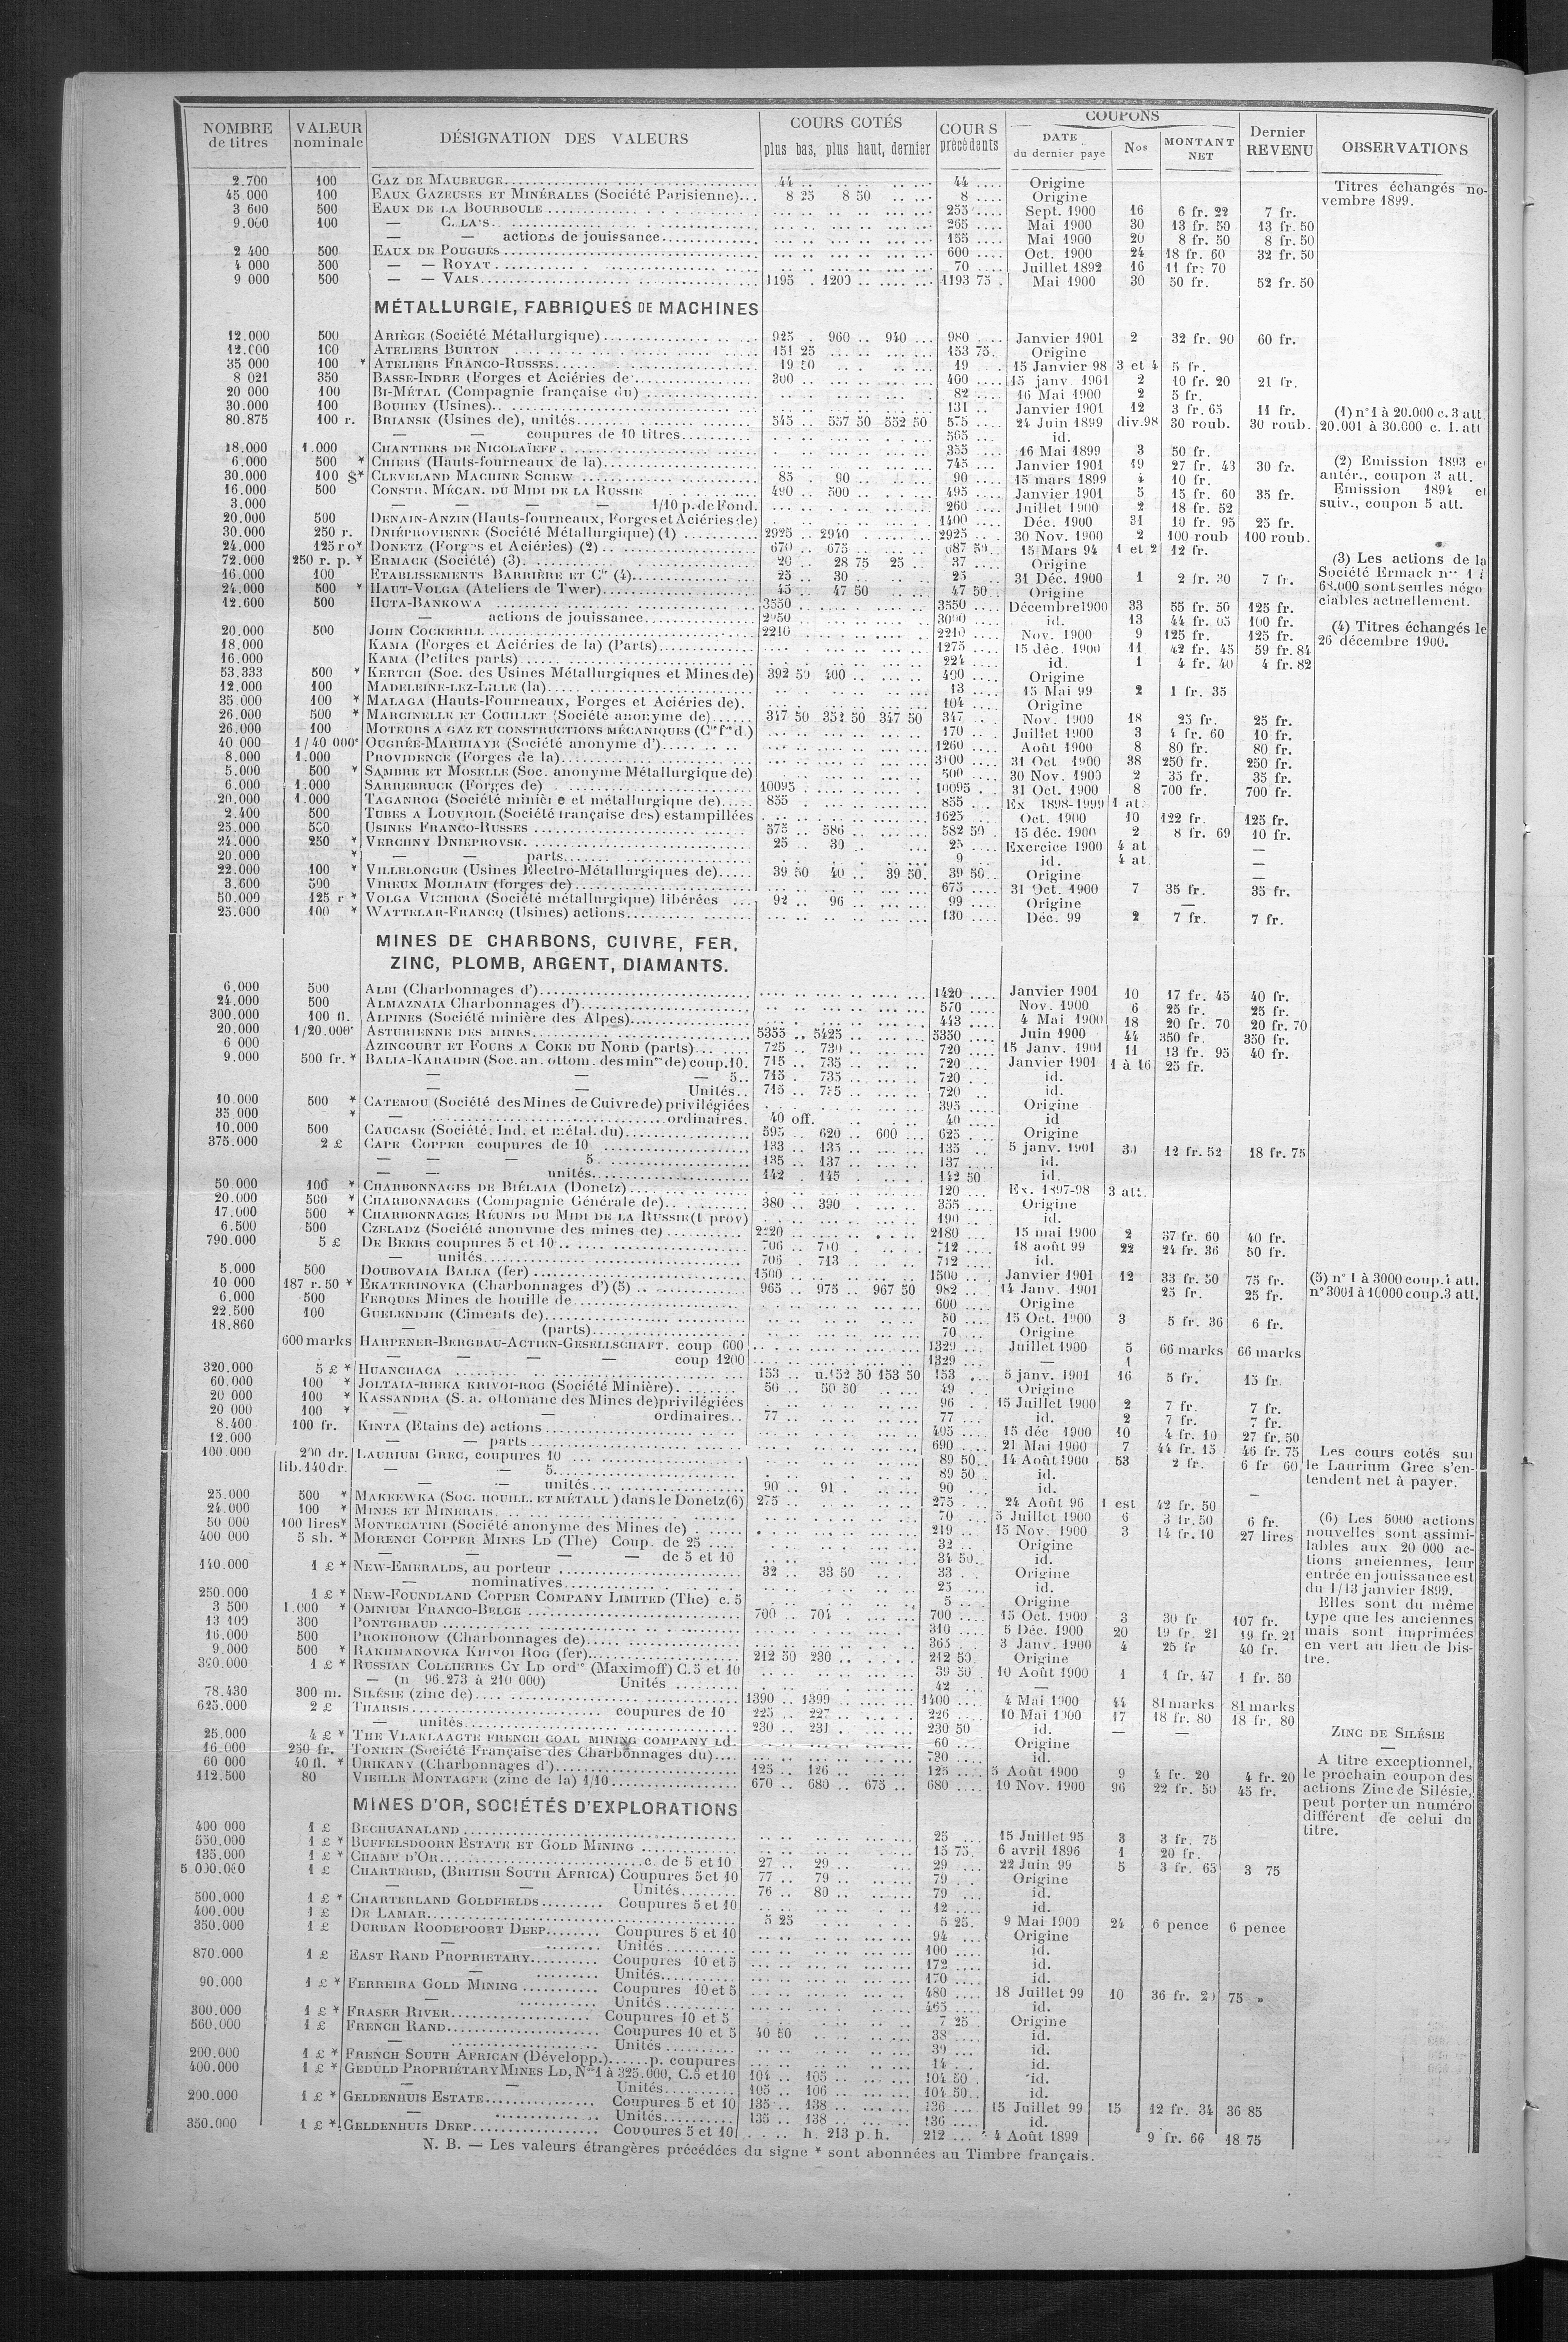 NOMBRE de titres | VALEUR nominale | DÉSIGNATION DES VALEURS | COURS COTÉS plus bas, plus haut, dernier | COURS précédents | COUPONS DATE du dernier paye | Nos | MONTANT NET | Dernier REVENU | OBSERVATIONS
2.700 100 GAZ DE MAUBEUGE 44 44 Origine
45 000 100 EAUX GAZEUSES ET MINÉRALES (Société Parisienne) 8 25 8 50 8 Origine
3 600 500 EAUX DE LA BOURBOULE 255 Sept. 1900 16 6 fr. 22 7 fr.
9.000 100 — 265 Mai 1900 30 13 fr. 50 13 fr. 50
— — actions de jouissance 155 Mai 1900 20 8 fr. 50 8 fr. 50
2 400 500 EAUX DE POUGUES 600 Oct. 1900 24 18 fr. 60 32 fr. 50
4 000 500 — — ROYAT 70 Juillet 1892 16 11 fr. 70
9 000 500 — — VALS 1195 1200 1193 75 Mai 1900 30 50 fr. 52 fr. 50
Titres échangés no-
vembre 1899.
MÉTALLURGIE, FABRIQUES DE MACHINES
12.000 500 ARIÈGE (Société Métallurgique) 925 960 940 980 Janvier 1901 2 32 fr. 90 60 fr.
12.000 100 ATELIERS BURTON 151 25 153 75 Origine
35 000 100 * ATELIERS FRANCO-RUSSES 19 50 19 15 Janvier 98 3 et 4 5 fr.
8 021 350 BASSE-INDRE (Forges et Aciéries de 300 400 15 janv 1901 2 10 fr. 20 21 fr.
20 000 100 BI-MÉTAL (Compagnie française du) 82 16 Mai 1900 2 5 fr.
30.000 100 BOUHEY (Usines) 131 Janvier 1901 12 3 fr. 65 11 fr.
80.875 100 r. BRIANSK (Usines de), unités 545 557 50 552 50 575 24 Juin 1899 div.98 30 roub. 30 roub.
— — coupures de 10 titres 565 id.
18.000 1.000 CHANTIERS DE NICOLAÏEFF 355 16 Mai 1899 3 50 fr.
6.000 500 * CHIERS (Hauts-fourneaux de la) 745 Janvier 1901 19 27 fr. 43 30 fr.
30.000 100 $* CLEVELAND MACHINE SCREW 85 90 90 15 mars 1899 4 10 fr.
16.000 500 CONSTR. MÉCAN. DU MIDI DE LA RUSSIE 490 500 495 Janvier 1901 5 15 fr. 60 35 fr.
3.000 — — — — 1/10 p. de Fond. 260 Juillet 1900 2 18 fr. 52
20.000 500 DENAIN-ANZIN (Hauts-fourneaux, Forges et Aciéries de) 1400 Déc. 1900 31 19 fr. 95 25 fr.
30.000 250 r. DNIÉPROVIENNE (Société Métallurgique) (1) 2925 2940 2925 30 Nov. 1900 2 100 roub 100 roub.
24.000 125 ro* DONETZ (Forges et Aciéries) (2) 670 675 687 50 15 Mars 94 1 et 2 12 fr.
72.000 250 r. p. * ERMACK (Société) (3) 20 28 75 25 37 Origine
16.000 100 ETABLISSEMENTS BARRIÈRE ET Cie (4) 25 30 25 31 Déc. 1900 1 2 fr. 30 7 fr.
24.000 500 * HAUT-VOLGA (Ateliers de Twer) 45 47 50 47 50 Origine
12.600 500 HUTA-BANKOWA 3550 3550 Décembre 1900 33 55 fr. 50 125 fr.
— actions de jouissance 2950 3000 id. 13 44 fr. 05 100 fr.
20.000 500 JOHN COCKERILL 2210 2210 Nov. 1900 9 125 fr. 125 fr.
18.000 KAMA (Forges et Aciéries de la) (Parts) 1275 15 déc. 1900 11 42 fr. 45 59 fr. 84
16.000 KAMA (Petites parts) 224 id. 1 4 fr. 40 4 fr. 82
53.333 500 * KERTCH (Soc. des Usines Métallurgiques et Mines de) 392 50 400 400 Origine
12.000 100 MADELEINE-LEZ-LILLE (la) 13 15 Mai 99 2 1 fr. 35
35.000 100 * MALAGA (Hauts-Fourneaux, Forges et Aciéries de). 104 Origine
26.000 500 * MARCINELLE ET COUILLET (Société anonyme de) 347 50 352 50 347 50 347 Nov. 1900 18 25 fr. 25 fr.
26.000 100 MOTEURS A GAZ ET CONSTRUCTIONS MÉCANIQUES 170 Juillet 1900 3 4 fr. 60 10 fr.
40 000 1/40 000e OUGRÉE-MARIHAYE (Société anonyme d') 1260 Août 1900 8 80 fr. 80 fr.
8.000 1.000 PROVIDENCE (Forges de la) 3100 31 Oct 1900 38 250 fr. 250 fr.
5.000 500 * SAMBRE ET MOSELLE (Soc. anonyme Métallurgique de) 500 30 Nov. 1900 2 35 fr. 35 fr.
6.000 1.000 SARREBRUCK (Forges de) 10095 10095 31 Oct. 1900 8 700 fr. 700 fr.
20.000 1.000 TAGANROG (Société minière et métallurgique de) 855 855 Ex 1898-1999 1 at.
2.400 500 TUBES A LOUVROIL (Société française des) estampillées 1625 Oct. 1900 10 122 fr. 125 fr.
25.000 500 USINES FRANCO-RUSSES 575 586 582 50 15 déc. 1900 2 8 fr. 69 10 fr.
24.000 250 * VERCHNY DNIEPROVSK 25 30 25 Exercice 1900 4 at —
20.000 * — — parts 9 id. 4 at. —
22.000 100 * VILLELONGUE (Usines Electro-Métallurgiques de) 39 50 40 39 50 39 50 Origine —
3.600 500 VIREUX MOLHAIN (forges de) 675 31 Oct. 1900 7 35 fr. 35 fr.
50.000 125 r * VOLGA VICHERA (Société métallurgique) libérées 92 96 99 Origine —
25.000 100 * WATTELAR-FRANCQ (Usines) actions 130 Déc. 99 2 7 fr. 7 fr.
(1) n°1 à 20.000 c. 3 att.
20.001 à 30.000 c. 1. att
(2) Emission 1893 et
antér., coupon 3 att.
Emission 1894 et
suiv., coupon 5 att.
(3) Les actions de la
Société Ermack nos 1 à
68.000 sont seules négo
ciables actuellement.
(4) Titres échangés le
26 décembre 1900.
MINES DE CHARBONS, CUIVRE, FER,
ZINC, PLOMB, ARGENT, DIAMANTS.
6.000 500 ALBI (Charbonnages d') 1420 Janvier 1901 10 17 fr. 45 40 fr.
24.000 500 ALMAZNAIA Charbonnages d') 570 Nov. 1900 6 25 fr. 25 fr.
300.000 100 fl. ALPINES (Société minière des Alpes) 443 4 Mai 1900 18 20 fr. 70 20 fr. 70
20.000 1/20.000e ASTURIENNE DES MINES 5355 5425 5350 Juin 1900 44 350 fr. 350 fr.
6 000 AZINCOURT ET FOURS A COKE DU NORD (parts) 725 730 720 15 Janv. 1901 11 13 fr. 95 40 fr.
9.000 500 fr. * BALIA-KARAIDIN (Soc. an. ottom. des mines de) coup. 10. 715 735 720 Janvier 1901 1 à 16 25 fr.
— — — 5 715 735 720 id.
— — Unités 715 720 id.
10.000 500 * CATEMOU (Société des Mines de Cuivre de) privilégiées 395 Origine
35 000 * — ordinaires. 40 off. 40 id
10.000 500 CAUCASE (Société, Ind. et métal. du) 595 620 600 625 Origine
375.000 2 £ CAPE COPPER coupures de 10 133 135 135 5 janv. 1901 12 fr. 52 18 fr. 75
— — — 5 135 137 137 id.
— — unités 142 145 142 50 id.
50 000 100 * CHARBONNAGES DE BIÉLAIA (Donetz) 120 Ex. 1897-98 3 att.
20.000 500 * CHARBONNAGES (Compagnie Générale de) 380 390 355 Origine
17.000 500 * CHARBONNAGES RÉUNIS DU MIDI DE LA RUSSIE (t prov) 190 id.
6.500 500 CZELADZ (Société anonyme des mines de) 2220 2180 15 mai 1900 2 37 fr. 60 40 fr.
790.000 5 £ DE BEERS coupures 5 et 10 706 710 712 18 août 99 22 24 fr. 36 50 fr.
— unités 706 713 712 id.
5.000 500 DOUBOVAIA BALKA (fer) 1500 1500 Janvier 1901 12 33 fr. 50 75 fr.
10 000 187 r. 50 * EKATERINOVKA (Charbonnages d') (5) 965 975 967 50 982 14 Janv. 1901 25 fr. 25 fr.
6.000 500 FERQUES Mines de houille de 600 Origine
22.500 100 GUELENDJIK (Ciments de) 50 15 Oct. 1900 3 5 fr. 36 6 fr.
18.860 — (parts) 70 Origine
600 marks HARPENER-BERGBAU-ACTIEN-GESELLSCHAFT. coup 600 1329 Juillet 1900 5 66 marks 66 marks
— — — — coup 1200 1329 — 1
320.000 5 £ * HUANCHACA 153 u.152 50 153 50 153 5 janv. 1901 16 5 fr. 15 fr.
60.000 100 * JOLTAIA-RIEKA KRIVOI-ROG (Société Minière) 50 50 50 49 Origine
20 000 100 * KASSANDRA (S. a. ottomane des Mines de) privilégiées 96 15 Juillet 1900 2 7 fr. 7 fr.
20 000 100 * — — ordinaires 77 77 id. 2 7 fr. 7 fr.
8.400 100 fr. KINTA (Etains de) actions 495 15 déc 1900 10 4 fr. 10 27 fr. 50
12.000 — — parts 690 21 Mai 1900 7 44 fr. 15 46 fr. 75
100 000 200 dr. LAURIUM GREC, coupures 10 89 50 14 Août 1900 53 2 fr. 6 fr 60
lib. 140 dr. — 5 89 50 id.
— unités 90 91 90 id. —
25.000 500 * MAKEEWKA (SOC. HOUILL. ET MÉTALL ) dans le Donetz (6) 275 275 24 Août 96 1 est 42 fr. 50
24.000 100 * MINES ET MINERAIS 70 5 Juillet 1900 6 3 fr. 50 6 fr.
50 000 100 lires* MONTECATINI (Société anonyme des Mines de) 219 15 Nov. 1900 3 14 fr. 10 27 lires
400 000 5 sh. * MORENCI COPPER MINES LD (The) Coup. de 25 32 Origine
— — — — de 5 et 10 34 50 id.
140.000 1 £ * NEW-EMERALDS, au porteur 32 33 50 33 Origine
— nominatives 25 id.
250.000 1 £ * NEW-FOUNDLAND COPPER COMPANY LIMITED (The) c. 5 5 Origine
3 500 1.000 * OMNIUM FRANCO-BELGE 700 704 700 15 Oct. 1900 3 30 fr 107 fr.
13 109 300 PONTGIBAUD 310 5 Déc. 1900 20 19 fr. 21 19 fr. 21
16.000 500 PROKHOROW (Charbonnages de) 365 3 Janv. 1900 4 25 fr 40 fr.
9.000 500 * RAKHMANOVKA KRIVOI ROG (fer) 212 50 230 212 50 Origine
1 £ * RUSSIAN COLLIERIES CY LD ordres (Maximoff) C. 5 et 10 39 50 10 Août 1900 1 1 fr. 47 1 fr. 50
— (n 96.273 à 210 000) Unités 42 —
78.430 300 m. SILÉSIE (zinc de) 1390 1399 1400 4 Mai 1900 44 81 marks 81 marks
625.000 2 £ THARSIS coupures de 10 225 227 226 10 Mai 1900 17 18 fr. 80 18 fr. 80
— unités 230 231 230 50 id. — —
25.000 4 £ * THE VLAKLAAGTE FRENCH COAL MINING COMPANY Ld 60 Origine
16.000 250 fr. TONKIN (Société Française des Charbonnages du) 730 id.
60 000 40 fl. * URIKANY (Charbonnages d') 125 126 125 5 Août 1900 9 4 fr. 20 4 fr. 20
112.500 80 VIEILLE MONTAGNE (zinc de la) 1/10 670 680 675 680 10 Nov. 1900 96 22 fr. 50 45 fr.
(5) n° 1 à 3000 coup. 4 att.
n° 3001 à 10000 coup. 3 att.
Les cours cotés sur
le Laurium Grec s'en-
tendent net à payer.
(6) Les 5000 actions
nouvelles sont assimi-
lables aux 20 000 ac-
tions anciennes, leur
entrée en jouissance est
du 1/13 janvier 1899.
Elles sont du même
type que les anciennes
mais sont imprimées
en vert au lieu de bis-
tre.
ZINC DE SILÉSIE
—
A titre exceptionnel,
le prochain coupon des
actions Zinc de Silésie,
peut porter un numéro
différent de celui du
titre.
MINES D'OR, SOCIÉTÉS D'EXPLORATIONS
400 000 1 £ BECHUANALAND 25 15 Juillet 95 3 3 fr. 75
550.000 1 £ * BUFFELSDOORN ESTATE ET GOLD MINING 15 75 6 avril 1896 1 20 fr.
135.000 1 £ * CHAMP D'OR c. de 5 et 10 27 29 29 22 Juin 99 5 3 fr. 63 3 75
5.000.000 1 £ CHARTERED, (BRITISH SOUTH AFRICA) Coupures 5 et 10 77 79 79 Origine
— — Unités 76 80 79 id.
500.000 1 £ * CHARTERLAND GOLDFIELDS Coupures 5 et 10 12 id.
400.000 1 £ DE LAMAR 5 25 5 25 9 Mai 1900 24 6 pence 6 pence
350.000 1 £ DURBAN ROODEPOORT DEEP Coupures 5 et 10 94 Origine
— Unités 100 id.
870.000 1 £ EAST RAND PROPRIETARY Coupures 10 et 5 172 id.
— Unités 170 id.
90.000 1 £ * FERREIRA GOLD MINING Coupures 10 et 5 480 18 Juillet 99 10 36 fr. 75 »
Unités 465 id.
300.000 1 £ * FRASER RIVER Coupures 10 et 5 7 25 Origine
560.000 1 £ FRENCH RAND Coupures 10 et 5 40 50 38 id.
— Unités 39 id.
200.000 1 £ * FRENCH SOUTH AFRICAN (Développ.) p. coupures 14 id.
400.000 1 £ * GEDULD PROPRIÉTARY MINES LD, Nos 1 à 325.000, C. 5 et 10 104 105 104 50 id.
— — Unités 105 106 104 50 id.
200.000 1 £ * GELDENHUIS ESTATE Coupures 5 et 10 135 138 136 15 Juillet 99 15 12 fr. 34 36 85
— Unités 135 138 136 id.
350.000 1 £ * GELDENHUIS DEEP Coupures 5 et 10 h. 213 p. h. 212 4 Août 1899 9 fr. 66 18 75
N. B. — Les valeurs étrangères précédées du signe * sont abonnées au Timbre français.